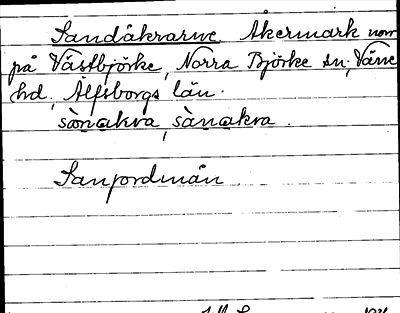 Sandåkrarne Åkermark norr
på Västbjörke, Norra Björke sn, Väne
hd, Älfsborgs län.
sànakra, sànakra.
Sanjordmån